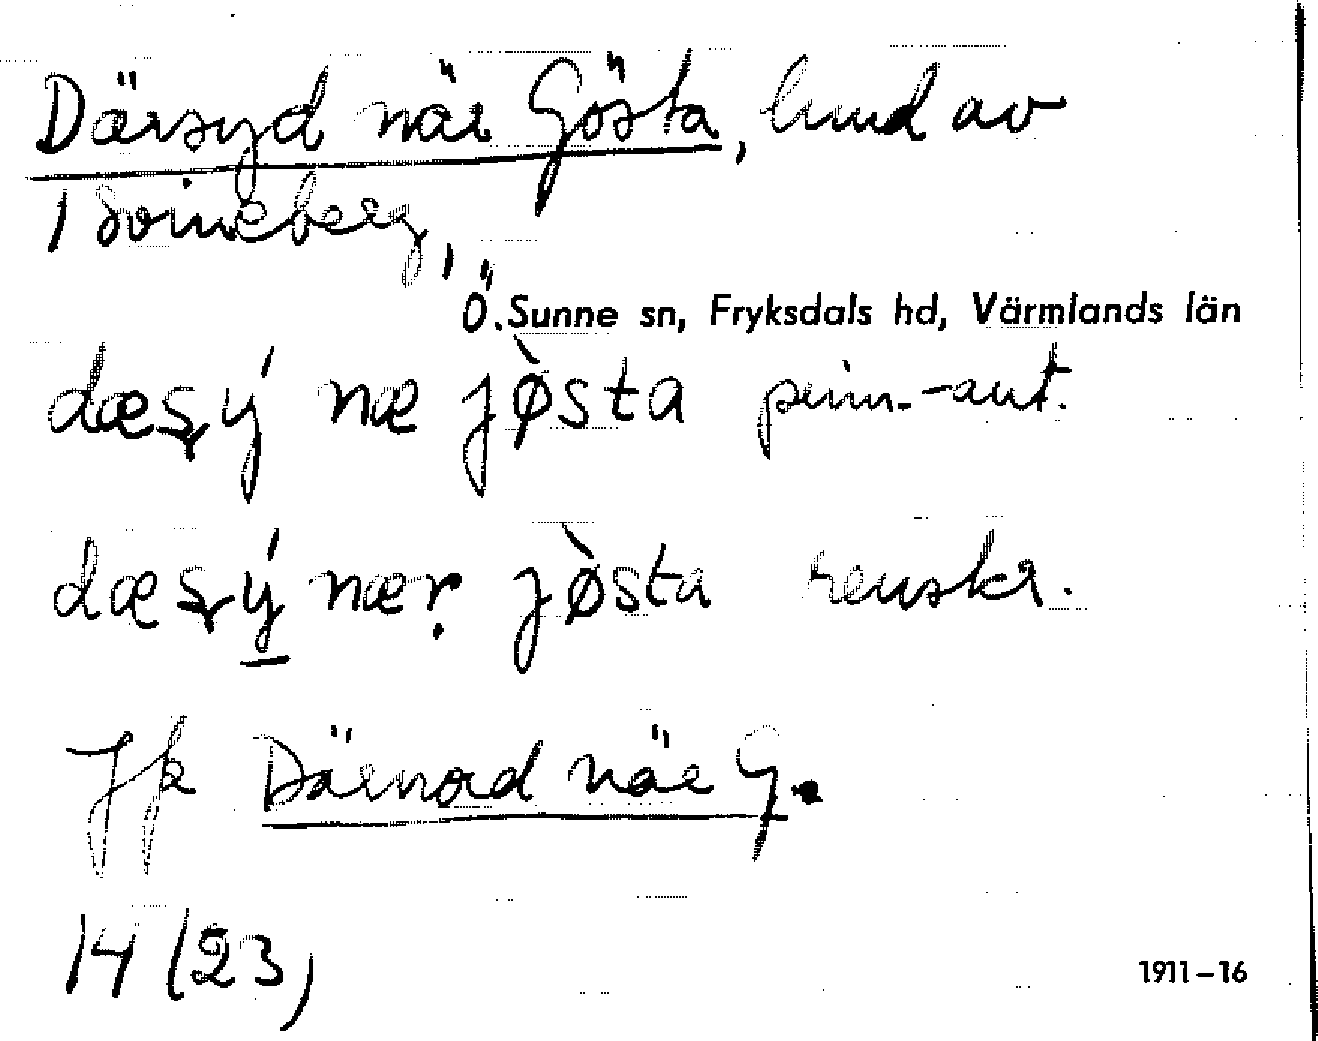 Därsyd när Gösta, hmd av
1 Svineberg,
Ö. Sunne sn, Fryksdals hd, Värmlands län
dæʂý næ jø̀sta prim.-ant.
dæʂý næṛ jø̀sta renskr.
Jfr Därnord när G.
14 (23)
1911–16